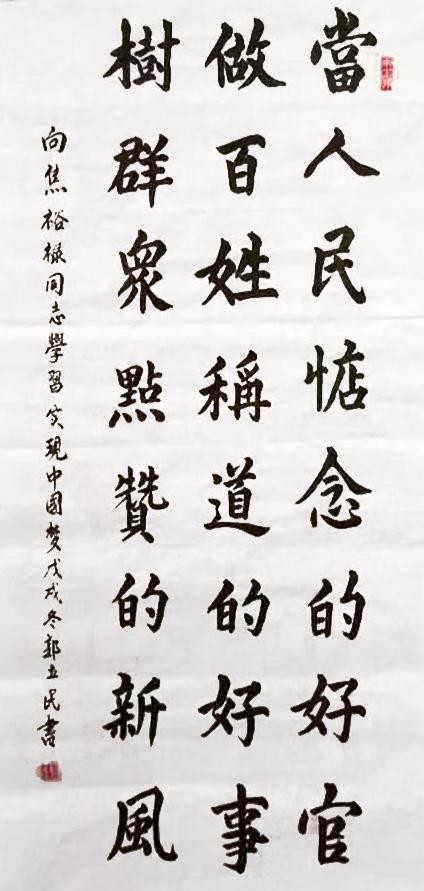 當人民惦念的好官
做百姓稱道的好事
樹群眾點贊的新風
向焦裕禄同志學習实現中國梦戊戌冬郭立民書